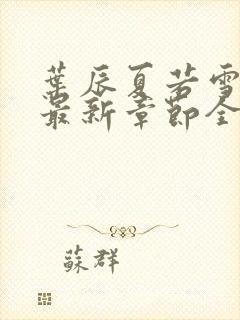 葉辰夏若雪
最新章節全
蘇群